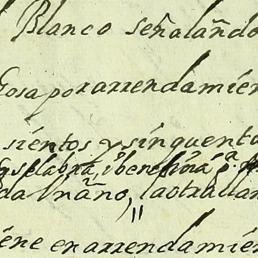 Blanco señalando
cosa por arrendamien
sientos y sinquenta
labra, y beneficia pa.
da Vn año, la otra llan
iene en arrendamien